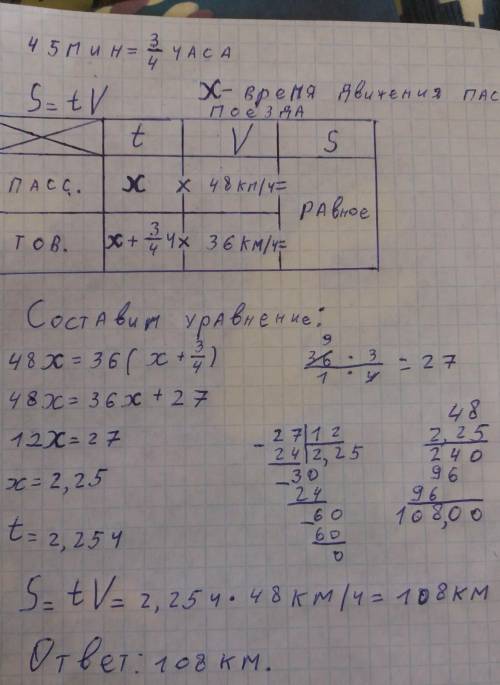 45 мин = 3/4 часа
S = tV
x - время движения пас
поезда
t V S
пасс. x × 48 км/ч =
равное
тов. x + 3/4 ч × 36 км/ч =
Составим уравнение:
48x = 36(x + 3/4)
48x = 36x + 27
12x = 27
x = 2,25
t = 2,25 ч
9
36 · 3 / 1 · 4 = 27
- 27 | 12
24 | 2,25
- 30
24
- 60
60
0
48
2,25
240
96
96
108,00
S = tV = 2,25 ч · 48 км/ч = 108 км
Ответ: 108 км.